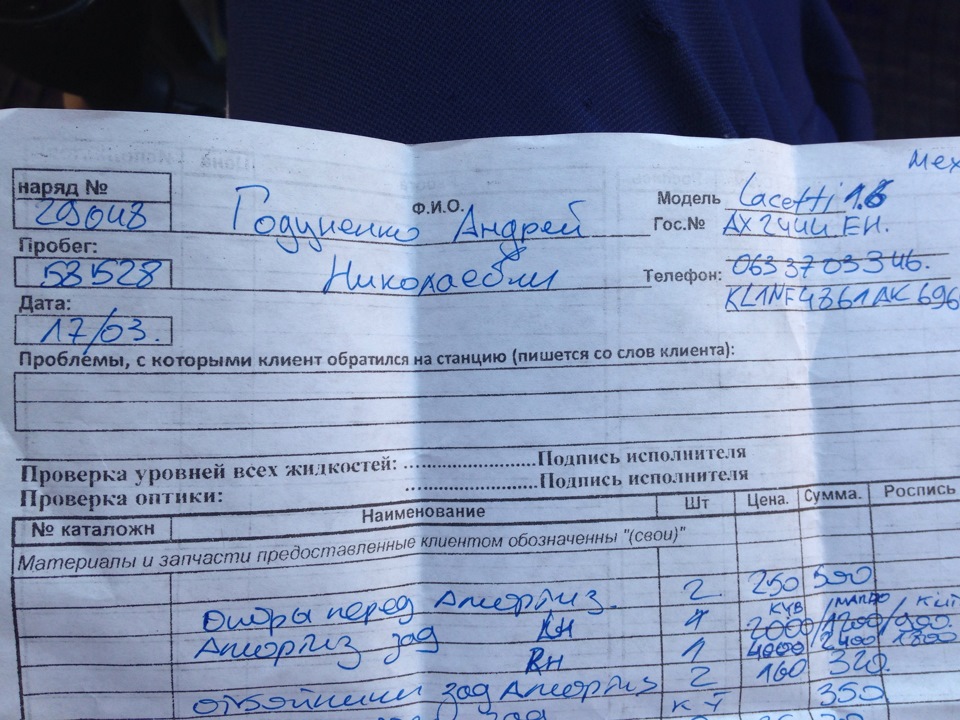 мех
наряд №
29048
Ф.И.О.
Годуненко Андрей
Николаевич
Модель Lacetti 1.6
Гос.№ АХ 2444 ЕН.
Пробег:
58528
Телефон: 063 37 03 3 46.
KL1NF4861AK696
Дата:
17/03.
Проблемы, с которыми клиент обратился на станцию (пишется со слов клиента):
Проверка уровней всех жидкостей: ........................Подпись исполнителя
Проверка оптики: ........................Подпись исполнителя
№ каталожн Наименование Шт Цена. Сумма. Роспись
Материалы и запчасти предоставленные клиентом обозначенны "(свои)"
Опоры перед Амортиз. 2 250 500
Амортиз зад
1 4000 2400 1800
отбойники зад Амортиз 2 160 320.
зад кт 350